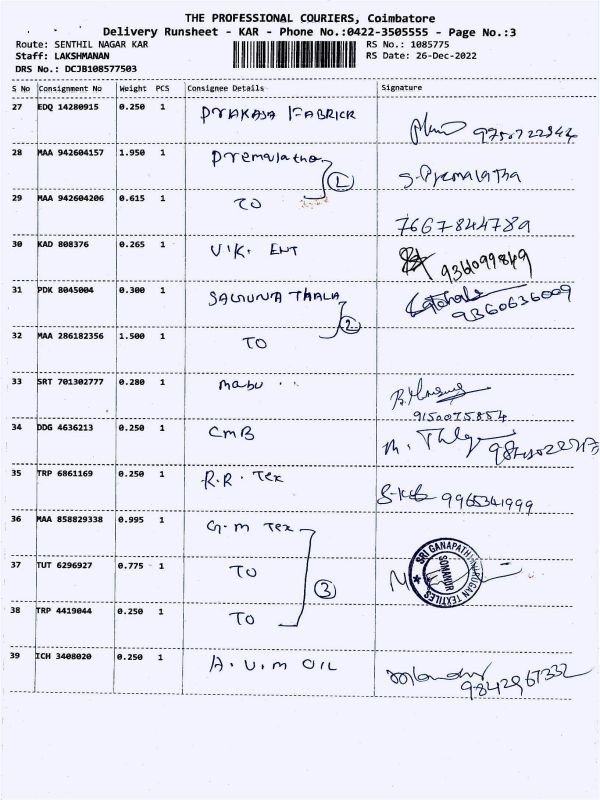 THE PROFESSIONAL COURIERS, Coimbatore
Delivery Runsheet - KAR - Phone No.:0422-3505555 - Page No.:3
Route: SENTHIL NAGAR KAR RS No.: 1085775
Staff: LAKSHMANAN RS Date: 26-Dec-2022
DRS No.: DCJB108577503
S No Consignment No Weight PCS Consignee Details Signature
27 EDQ 14280915 0.250 1 PRAKASA FABRICK
28 MAA 942604157 1.950 1 Premalatha 1 S. Premalatha
29 MAA 942604206 0.615 1 TO 7667844789
30 KAD 808376 0.265 1 V.K. ENT
31 PDK 8045004 0.300 1 9360636009
32 MAA 286182356 1.500 1 TO 2
33 SRT 701302777 0.280 1 mabu ..
9150075854
34 DDG 4636213 0.250 1 CMB
35 TRP 6861169 0.250 1 R.R. Tex 9965341999
36 MAA 858829338 0.995 1 G.m Tex
37 TUT 6296927 0.775 1 TO 3
SRI GANAPATHI MURUGAN TEXTILES
SOMANUR
38 TRP 4419044 0.250 1 TO
39 ICH 3408020 0.250 1 A. V. M OIL
9842967332